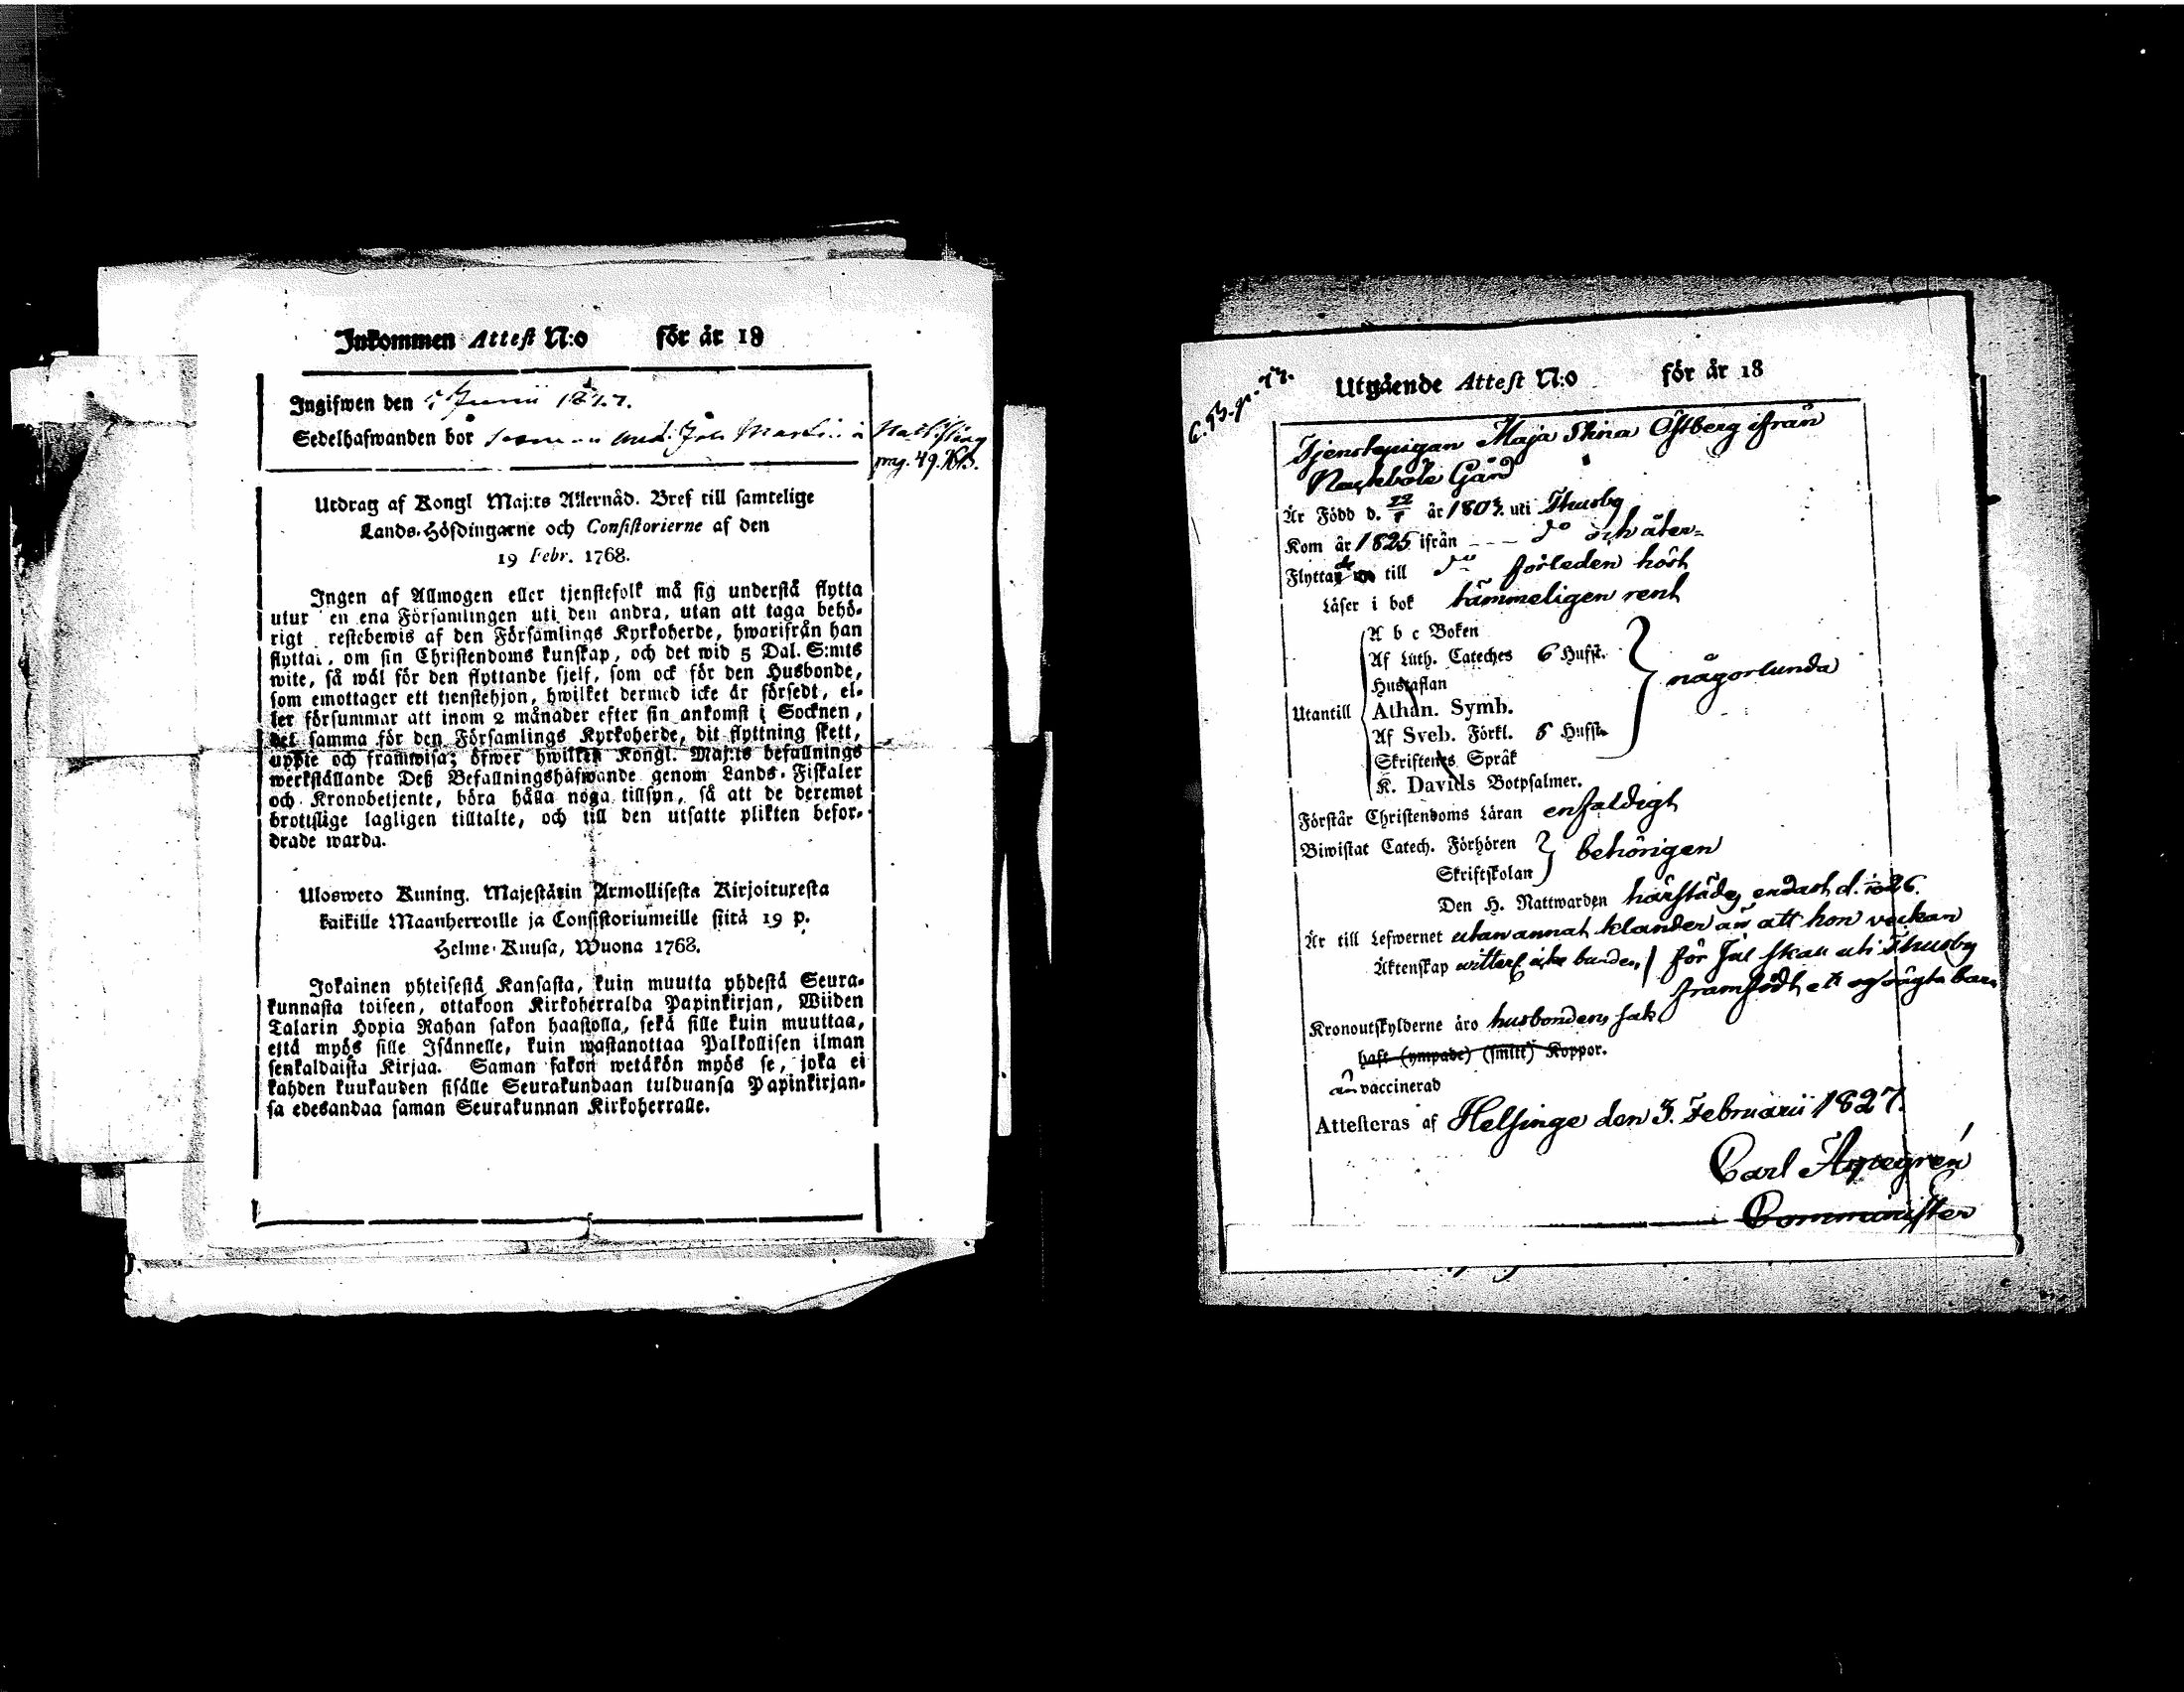 Inkommen Attest N:o för år 18
Ingifwen den Junii 1827.
Sedelhafwanden bor
pag. 49.
Utdrag af Kongl Maj:ts Allernåd. Bref till samtelige
Lands-Höfdingarne och Consistorierne af den
19 Febr. 1768.
Ingen af Allmogen eller tjenstefolk må sig understå flytta
utur en ena Församlingen uti den andra, utan att taga behö-
rigt restebewis af den Församlings Kyrkoherde, hwarifrån han
flyttar, om sin Christendoms kunskap, och det wid 5 Dal. S:mts
wite, så wäl för den flyttande sjelf, som ock för den Husbonde,
som emottager ett tjenstehjon, hwilket dermed icke är försedt, el-
ler försummar att inom 2 månader efter sin ankomst i Socknen,
det samma för den Församlings Kyrkoherde, dit flyttning skett,
uppte och framwisa; öfwer hwilken Kongl. Maj:ts befallnings
werkställande Deß Befallningshafwande genom Lands-Fiskaler
och Kronobetjente, böra hålla noga tillsyn, så att de deremot
brottslige lagligen tilltalte, och till den utsatte plikten befor-
drade warda.
Ulosweto Kuning. Majestätin Armollisesta Kirjoituxesta
kaikille Maanherroille ja Consistoriumeille siitä 19 p.
Helme-Kuusa, Wuona 1768.
Jokainen yhteisestä Kansasta, kuin muutta yhdestä Seura-
kunnasta toiseen, ottakoon Kirkoherralda Papinkirjan, Wiiden
Talarin Hopia Rahan sakon haastolla, sekä sille kuin muuttaa,
että myös sille Isännelle, kuin wastanottaa Palkollisen ilman
senkaldaista Kirjaa. Saman sakon wetäkön myös se, joka ei
kahden kuukauden sisälle Seurakundaan tulduansa Papinkirjan-
sa edesandaa saman Seurakunnan Kirkoherralle.
C.B. p. 77.
Utgående Attest N:o för år 18
Tjenstepigan Maja Stina Östberg ifrån
Nackböle Gård
Är Född d. år 1803. uti Thusby
Kom år 1825 ifrån --- do och åter-
Flyttade till do förleden höst
Läser i bok tämmeligen rent
A b c Boken
Af Luth. Cateches 6 Hufst.
Hustaflan
Utantill Athan. Symb. någorlunda
Af Sveb. Förkl. 6 Hufst.
Skriftenes Språk
K. Davids Botpsalmer.
Förstår Christendoms Läran enfaldigt
Biwistat Catech. Förhören behörigen
Skriftskolan
Den H. Nattwarden härstädes endast d. 1826.
Är till Lefwernet utan annat klander än att hon veckan
Äktenskap witterl. icke bunden, för Jul skall uti Thusby
framfödt ett oägta barn
Kronoutskylderne äro husbondens sak
haft (ympade) (smitt) Koppor.
än vaccinerad
Attesteras af Helsinge den 3. Februarii 1827.
Carl
Comminister